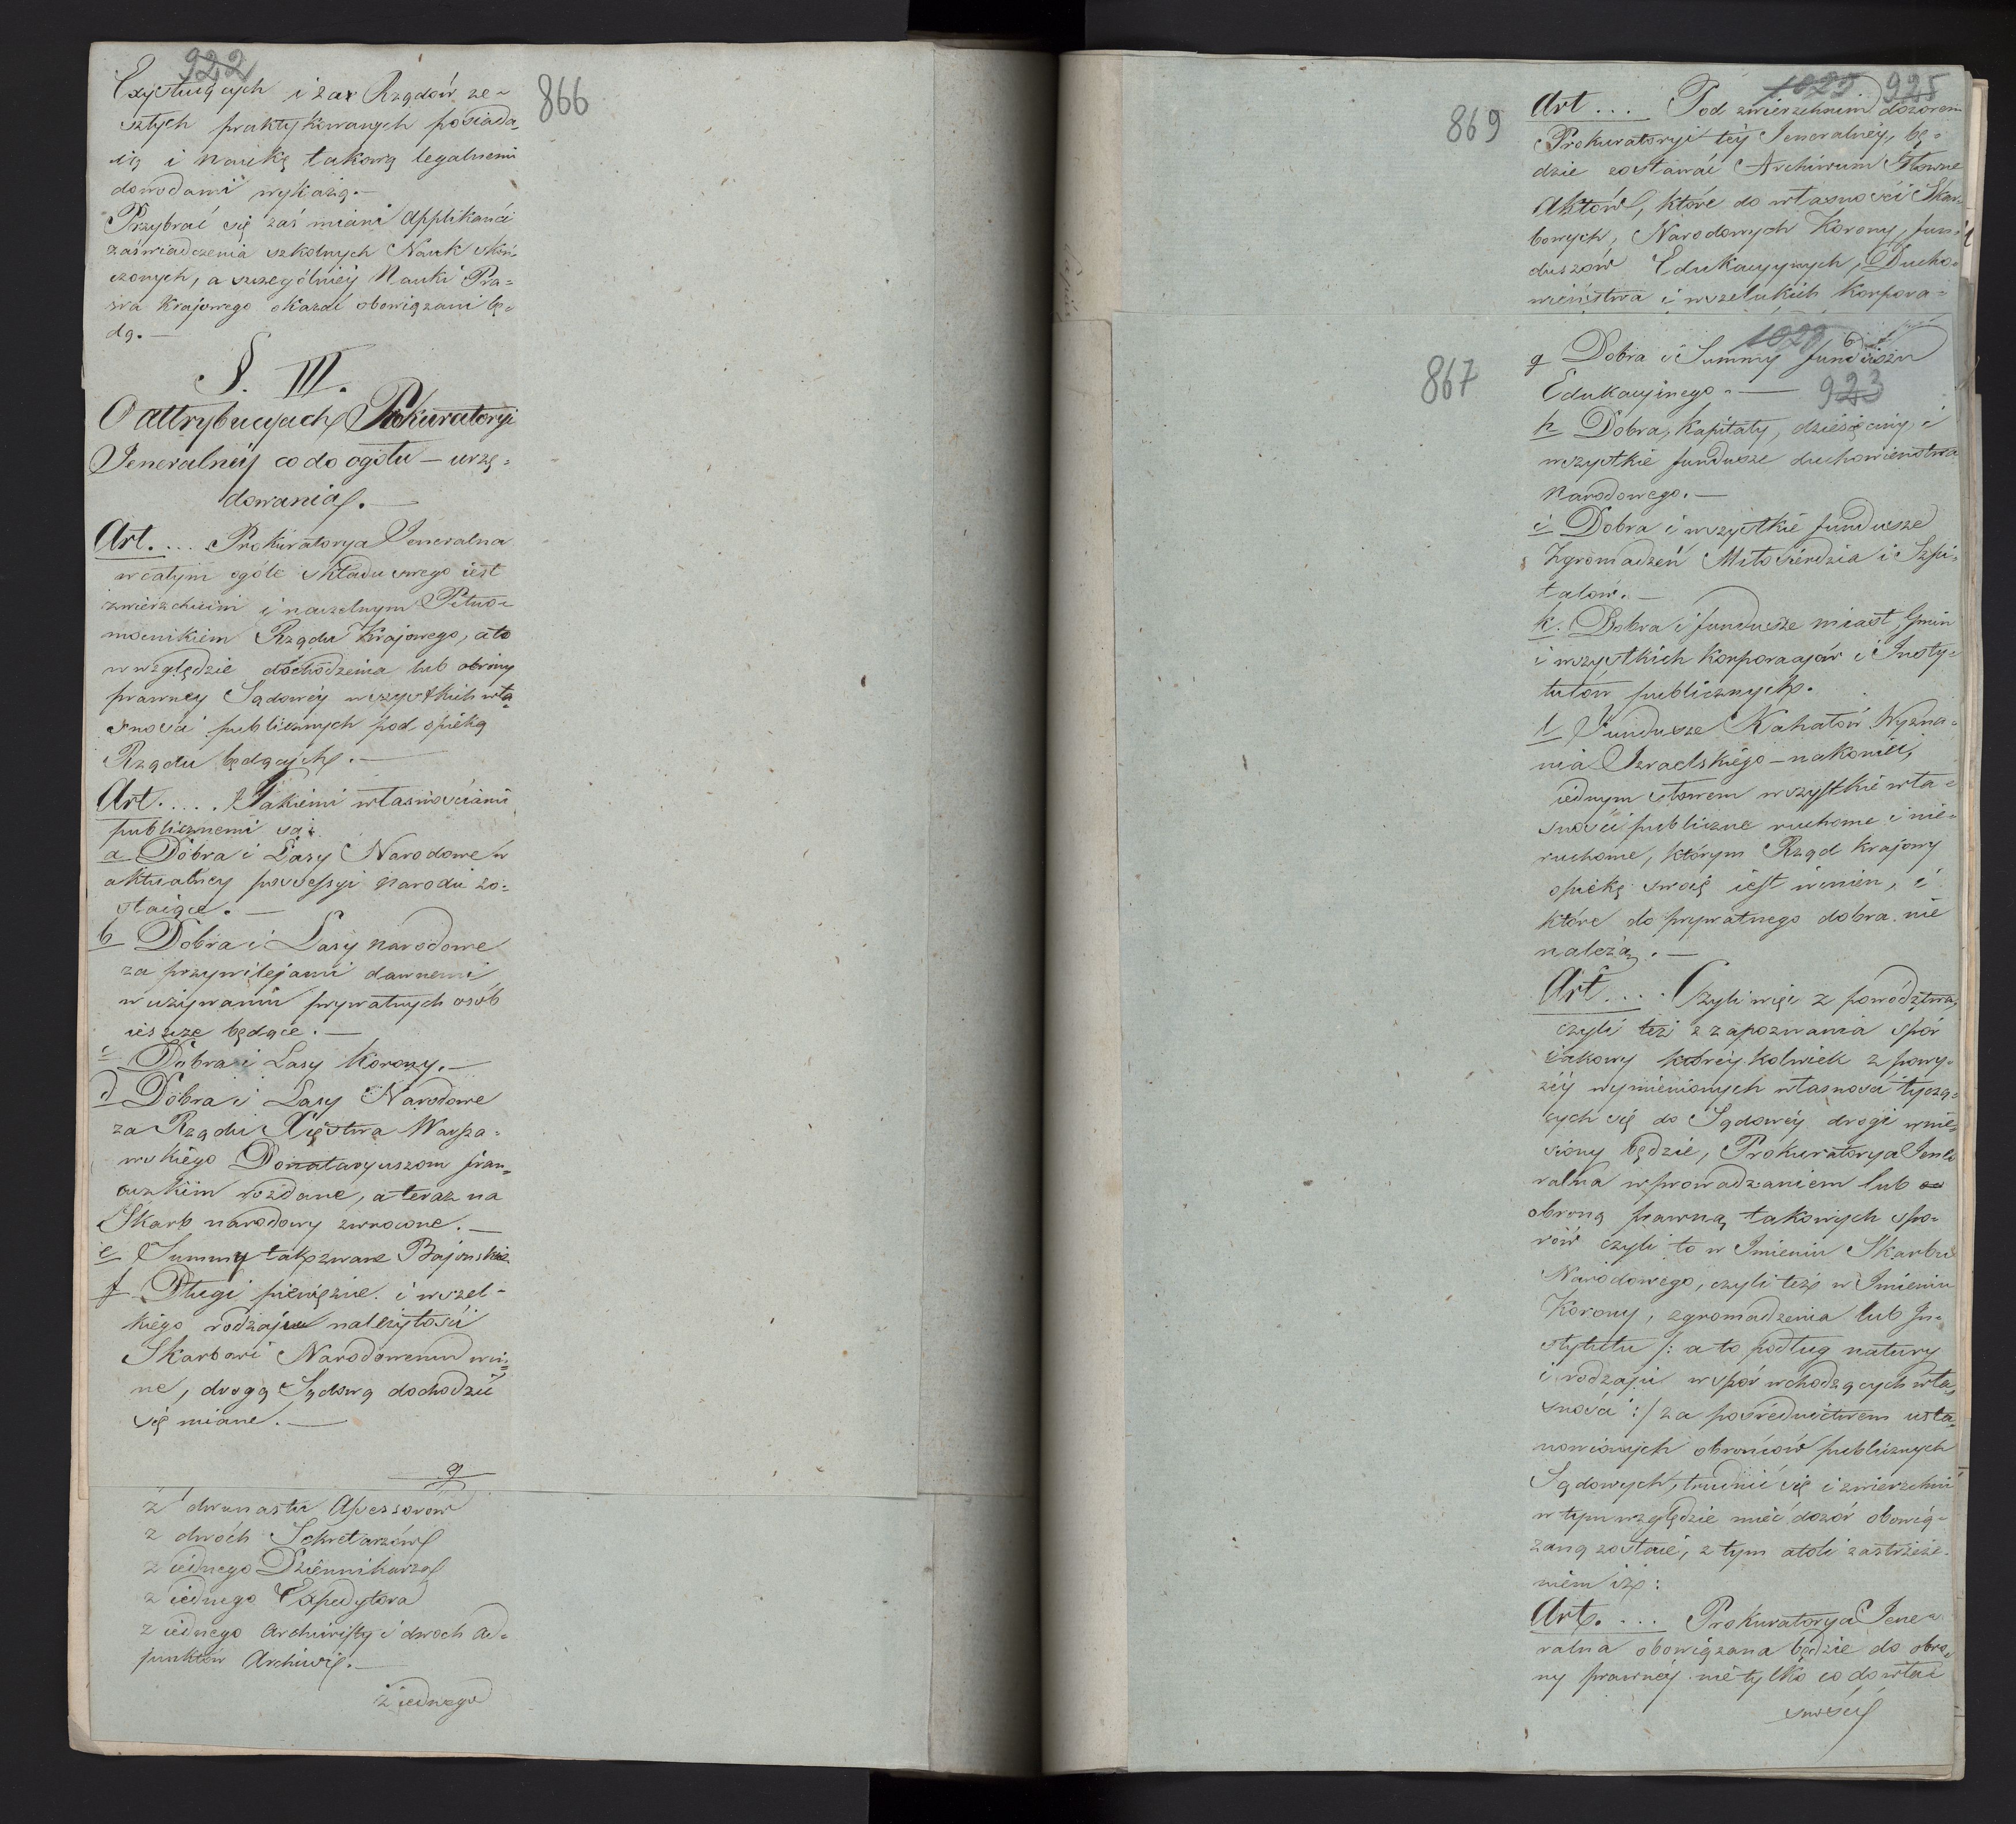 922
866
Exystuiących i za Rządów ze-
szłych praktykowanych posiada-
ią i Naukę takową legalnemi
dowodami wykażą.—
Przybrać się zaś miani Applikanći
zaświadczenia szkolnych Nauk skoń-
czonych, a szczególniéy Nauki Pra-
wa Krajowego okazać obowiązani bę-
dą.—
§. III.
O attrybucyach Prokuratoryi
Jeneralnéy co do ogółu — urzę-
dowania.—
Art. ... Prokuratorya Jeneralna
w całym ogóle składu swego iest
zwierzchnim i naczelnym Pełno-
mocnikiem Rządu Krajowego, a to
w względzie dochodzenia lub obrony
prawney Sądowéy wszystkich wła-
sności publicznych pod opieką
Rządu będących.—
Art. .... Takiemi własnościami
publicznemi są:
a Dobra i Lasy Narodowe w
aktualney possessyi Narodu zo-
staiące.—
b Dobra i Lasy narodowe
za przywilejami dawnemi
w używaniu prywatnych osób
ieszcze będące.—
c Dobra i Lasy Korony.—
d Dobra i Lasy Narodowe
za Rządu Xięstwa Warsza-
wskiego Donataryuszom fran-
cuzkim rozdane, a teraz na
Skarb narodowy zwrocone.—
e Summy tak zwane Bajonskie
f Długi pieniężne i wszel-
kiego rodzaju należytości
Skarbowi Narodowemu win-
ne, drogą Sądową dochodzić
się miane.—
g
z dwunastu Assessorow
z dwóch Sekretarzów
z iednego Dziennikarza
z iednego Expedytora
z iednego Archiwisty i dwoch Ad-
junktów Archiwi.—
z iednego
1025 925
869
Art ... Pod zwierzchnim dozorem
Prokuratoryi téy Jeneralnéy, bę-
dzie zostawać Archiwum Głowne
Aktów, które do własności Skar-
bowych, Narodowych Korony, fun-
duszów Edukacyynych, Ducho-
wieństwa i wszelakich Korpora-
867
923
g Dobra i Summy funduszu
Edukacyinego.—
h Dobra, Kapitały, dziesięciny, i
wszystkie fundusze duchowieństwa
Narodowego.—
i Dobra i wszystkie fundusze
Zgromadzeń Miłosierdzia i Szpi-
talów.—
k. Dobra i fundusze miast, Gmin
i wszystkich Korporacyów i Insty-
tutów publicznych.
l Fundusze Kahałów Wyzna-
nia Izraelskiégo — nakoniec,
iednym słowem wszystkie wła-
sności publiczne ruchome i nie-
ruchome, którym Rząd Krajowy
opiekę swoię iest winien, i
które do prywatnego dobra nie
należą.—
Art .... Czyli więc z powództwa,
czyli też z zapozwania spór
iakowy któréy kolwiek z powy-
żéy wymienionych własności tyczą-
cych się do Sądowéy drogi wnie-
siony będzie, Prokuratorya Jene-
ralna wprowadzaniem lub
obroną prawną takowych spo-
rów czyli to w Imieniu Skarbu
Narodowego, czyli też w Imieniu
Korony, zgromadzenia lub In-
stytutu /: a to podług natury
i rodzaju w spór wchodzących wła-
sności :/ za pośrednictwem usta-
nowionych obrońców publicznych
Sądowych, trudnić się i zwierzchni
w tym względzie mieć dozór obowią-
zaną zostaie, z tym atoli zastrzeże-
niem iż:
Art. .... Prokuratorya Jene-
ralna obowiązana będzie do obro-
ny prawnéy nie tylko co do wła-
sności